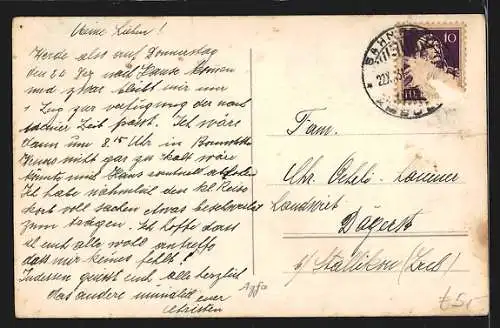 Meine Lieben!
Werde also auf Donnerstag
den 24 Dez nach Hause kommen
und zwar bleibt mir nur
1 Zug zur verfügung der nach
meiner Zeit passt. Ich wäre
dann um 8.15 Uhr in
wenns nicht gar zu kalt wäre
könnte mich Hans eventuell abholen
Ich habe nähmlich den kl Reise
korb voll sachen etwas beschwerlich
zum tragen. Ich hoffe dass
ich euch alle wohl antreffe
dass mir keines fehlt!
Indessen grüsst euch alle herzlich
Das andere mündlich euer
Christen
Agfa
BAHN
22.X
10
Fam.
Chr. Oehli-
Landwirt
Dägerst
b/ Stallikon (Zch.)
£5.-